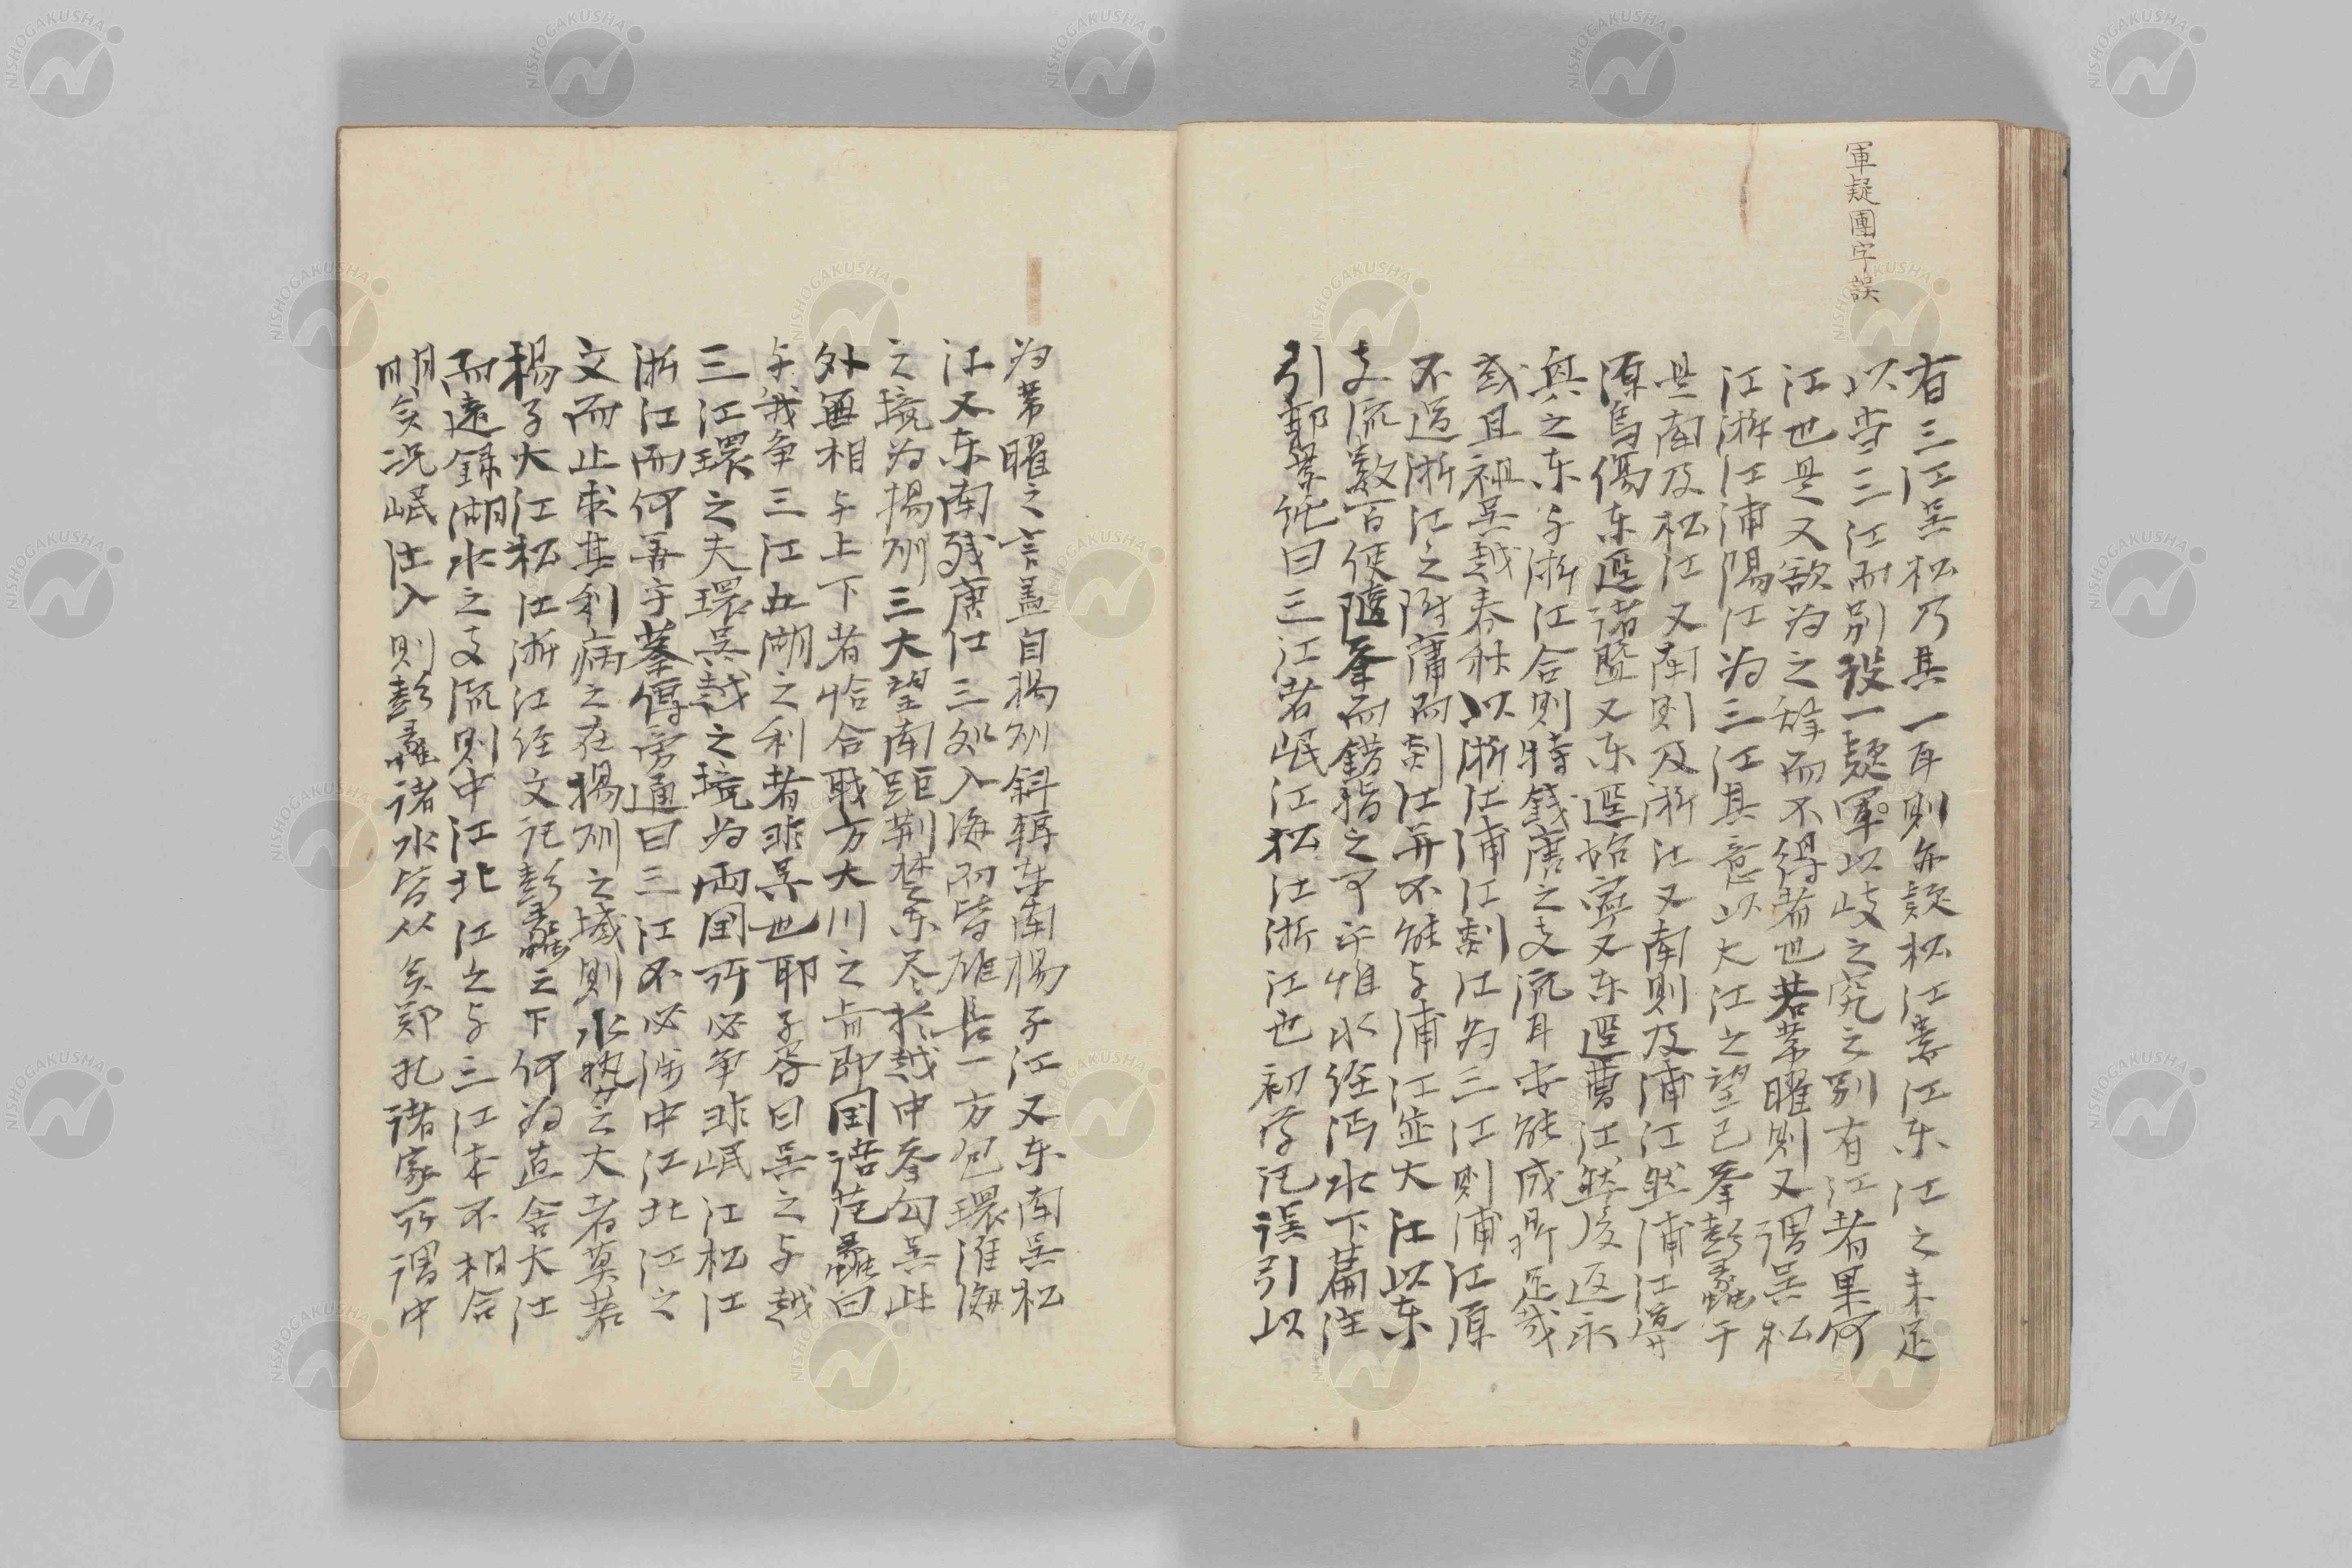 軍疑團字誤
有三江吳松乃其一耳則亦疑松江婁江东江之未足
以当三江而別設一疑軍以歧之究之別有江者果何
江也是又欲为之辞而不得者也若韋曜則又谓吳松
江浙江浦陽江为三江其意以大江之望已峚彭蠡于
是南及松江又南則及浙江又南則及浦江然浦江導
源烏傷东逕诸暨又东逕始寧又东逕曹江然後返永
興之东与浙江合則特錢唐之支流耳安能成所足哉
或且祖吳越春秋以浙江浦江剡江为三江則浦江原
不过浙江之附庸而剡江并不能与浦江並大江以东
支流数百使随峚而錯指之可乎惟水经沔水下篇注
引郭景纯曰三江者岷江松江浙江也初学记误引以
为韋曜之言盖自揚州斜轉东南揚子江又东南吳松
江又东南錢唐江三処入海而皆雄長一方包環淮海
之境为揚州三大望南距荆楚东尽於越中峚勾吳此
外無相与上下者恰合職方大川之旨即国语范蠡曰
与我争三江五湖之利者非吳也耶子胥曰吳之与越
三江環之夫環吳越之境为両国所必争非岷江松江
浙江而何善乎蔡傳旁通曰三江不必涉中江北江之
文而止求其利病之在揚州之域則水勢之大者莫若
揚子大江松江浙江经文记彭蠡之下何为直舍大江
而遠録湖水之支流則中江北江之与三江本不相合
明矣况岷江入則彭蠡诸水皆从矣鄭孔诸家所谓中